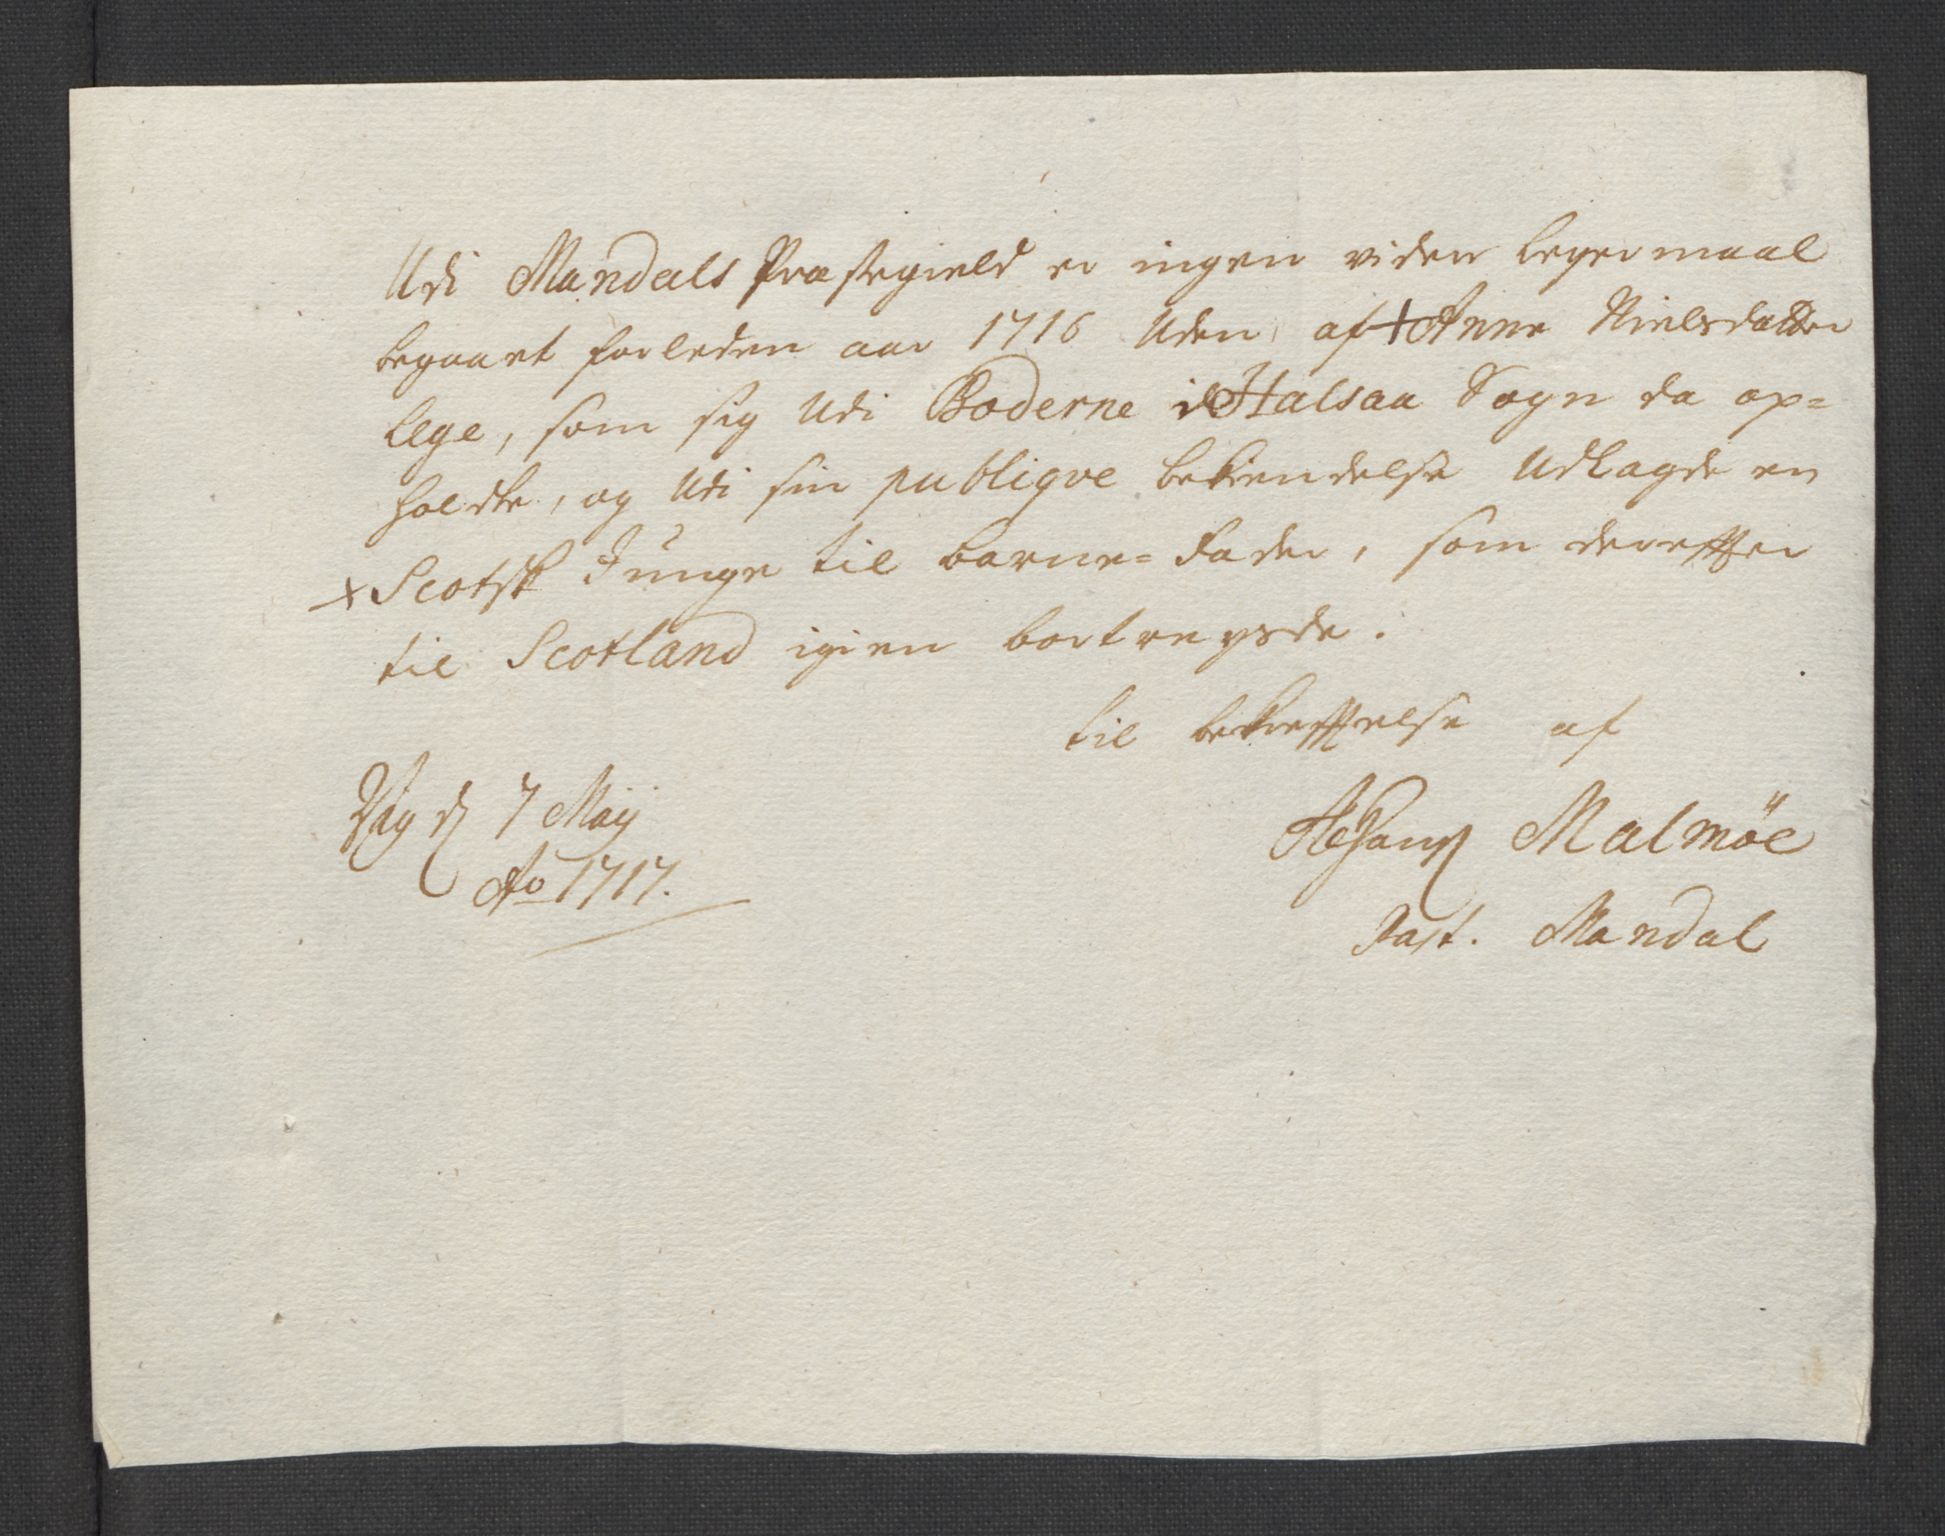 Udi Mandals Præstegield er ingen viden leyermaal
begaaet forleden aar 1716 Uden af + Anne Nielsdatter
lege, som sig Udi Boderne i Halsaa Sogn da op=
holdte, og Udi sin publiqve bekiendelse Udlagde en
+ Scotsk Junge til barne=fader, som derefter
til Scotland igien bortreysde.
til bekreftelse af
d 7 Maij
Ao 1717.
Malmöe
Past. Mandal